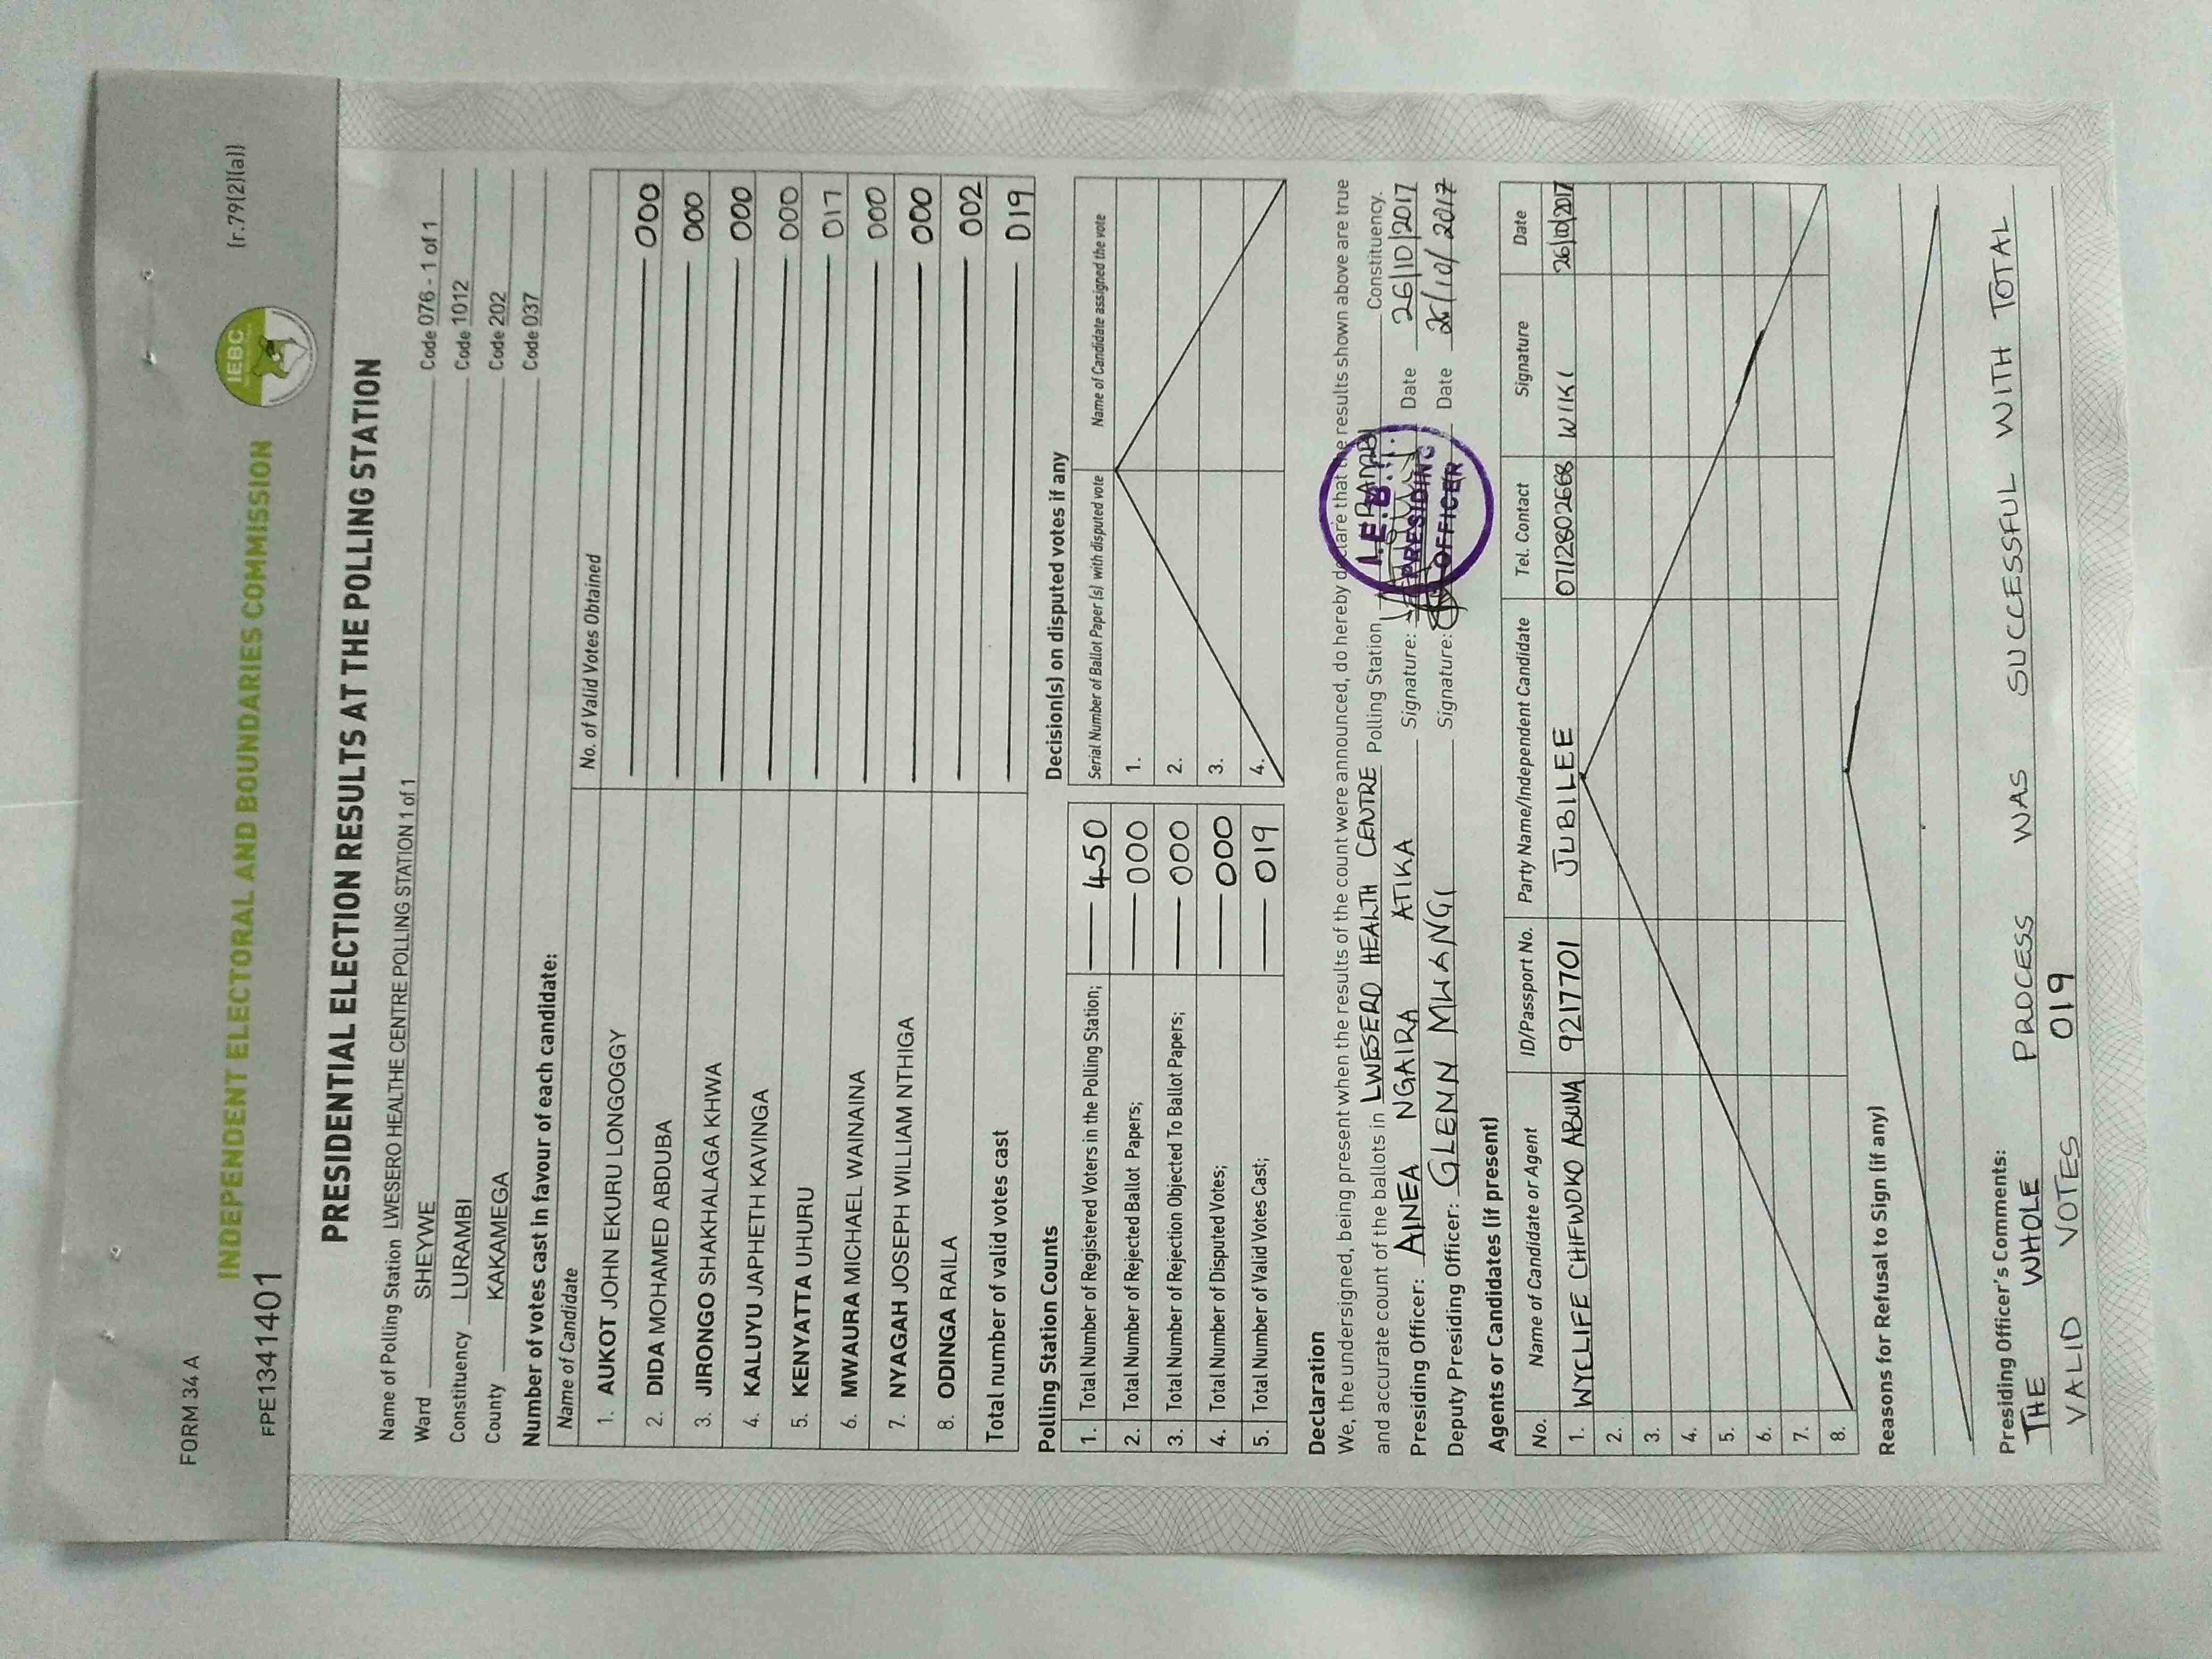 FORM 34 A
(r.79(2)(a))
IEBC
INDEPENDENT ELECTORAL AND BOUNDARIES COMMISSION
FPE1341401
PRESIDENTIAL ELECTION RESULTS AT THE POLLING STATION
Name of Polling Station LWESERO HEALTHE CENTRE POLLING STATION 1 of 1 Code 076 - 1 of 1
Ward SHEYWE Code 1012
Constituency LURAMBI Code 202
County KAKAMEGA Code 037
Number of votes cast in favour of each candidate:
Name of Candidate No. of Valid Votes Obtained
1. AUKOT JOHN EKURU LONGOGGY 000
2. DIDA MOHAMED ABDUBA 000
3. JIRONGO SHAKHALAGA KHWA 000
4. KALUYU JAPHETH KAVINGA 000
5. KENYATTA UHURU 017
6. MWAURA MICHAEL WAINAINA 000
7. NYAGAH JOSEPH WILLIAM NTHIGA 000
8. ODINGA RAILA 002
Total number of valid votes cast 019
Polling Station Counts
1. Total Number of Registered Voters in the Polling Station; 450
2. Total Number of Rejected Ballot Papers; 000
3. Total Number of Rejection Objected To Ballot Papers; 000
4. Total Number of Disputed Votes; 000
5. Total Number of Valid Votes Cast; 019
Decision(s) on disputed votes if any
Serial Number of Ballot Paper (s) with disputed vote Name of Candidate assigned the vote
1.
2.
3.
4.
Declaration
We, the undersigned, being present when the results of the count were announced, do hereby declare that the results shown above are true
and accurate count of the ballots in LWESERO HEALTH CENTRE Polling Station, LURAMBI Constituency.
Presiding Officer: AINEA NGAIRA ATIKA Signature: Date 26/10/2017
Deputy Presiding Officer: GLENN MWANGI Signature: Date 26/10/2017
PRESIDING
OFFICER
Agents or Candidates (if present)
No. Name of Candidate or Agent ID/Passport No. Party Name/Independent Candidate Tel. Contact Signature Date
1. WYCLIFE CHIFWOKO ABUNA 9217701 JUBILEE 0712802668 WIKI 26/10/2017
2.
3.
4.
5.
6.
7.
8.
Reasons for Refusal to Sign (if any)
Presiding Officer's Comments:
THE WHOLE PROCESS WAS SUCCESSFUL WITH TOTAL
VALID VOTES 019